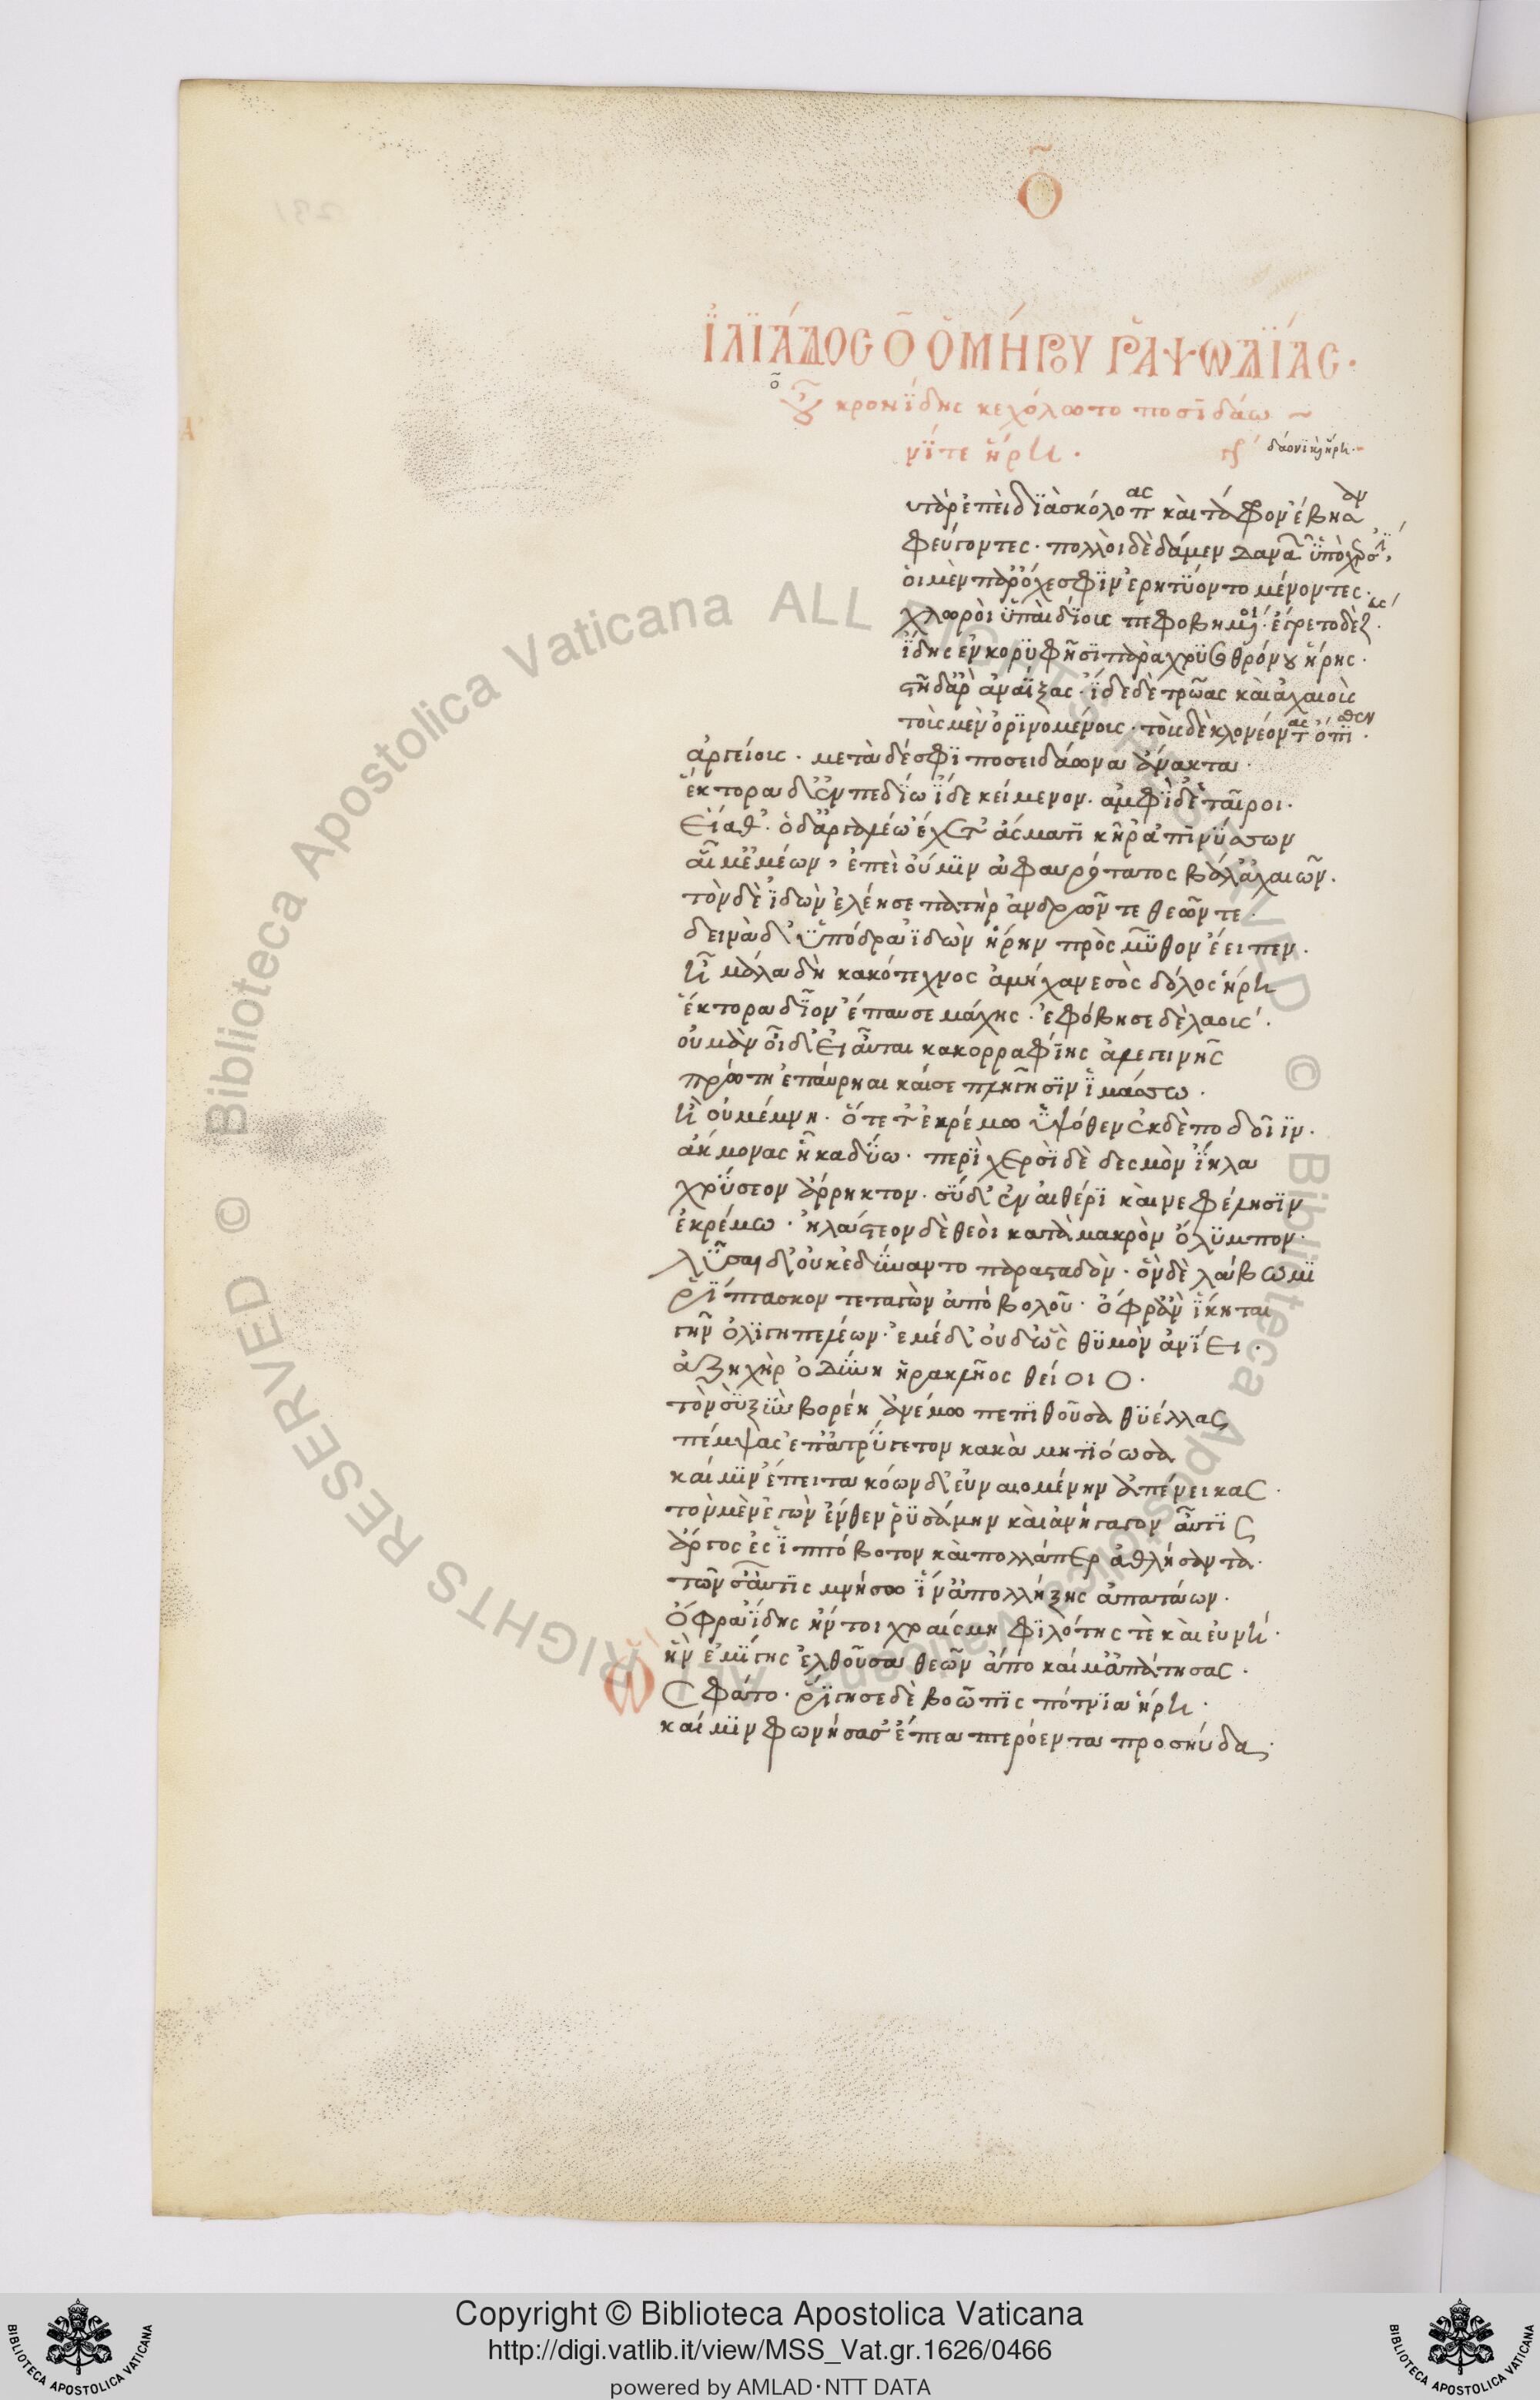 Ο
ἸΛΙΆΔΟΣ Ο ὉΜΉΡΟΥ ῬΑΨΩΔΊΑΣ·
ο κρονΐδης κεχόλωτο ποσιδάω
νΐτε ἥρη· δάονϊ κ ἥρη·
υτὰρ ἐπεὶ διὰ σκόλοπας καὶ τάφρον ἔβησαν
φεύγοντες· πολλοὶ δὲ δάμεν δαναῶν ὑπὸ χερσίν,
οἱ μὲν παρ ὄχεσφιν ἐρητύοντο μένοντες·
χλωροὶ ὑπαὶ δείους πεφοβημένοι· ἔγρετο δὲ ζεύς·
ἴδης ἐν κορυφῇσι παρὰ χρυσοθρόνου ἥρης·
στῆ δἄρ ἀναΐξας· ἴδε δὲ τρῶας καὶ ἀχαιοὺς
τοὺς μὲν ὀρινομένους· τοὺς δὲ κλονέοντας ὄπισθεν·
ἀργείους· μετὰ δέ σφι ποσειδάωνα ἄνακτα·
ἕκτορα δ' ἐν πεδίω ἴδε κείμενον· ἀμφὶ δ' ἑταῖροι·
εἵαθ'· ὁ δ' ἀργαλέω ἔχετ' ἄσματι κῆρ ἀπινύσσων
αἷμ' ἐμέων, ἐπεὶ οὔ μιν ἀφαυρότατος βάλ' ἀχαιῶν·
τὸν δὲ ἰδὼν ἐλέησε πατὴρ ἀνδρῶν τε θεῶν τε·
δεινὰ δ' ὑπόδρα ἰδὼν ἥρην πρὸς μῦθον ἔειπεν·
ἦ μάλα δὴ κακότεχνος ἀμήχανε σὸς δόλος ἥρη
ἕκτορα δῖον ἔπαυσε μάχης· ἐφόβησε δὲ λαούς·
οὐ μὰν οἶδ' εἰ αὖται κακορραφίης ἀλεγεινῆς
πρώτη ἐπαύρηαι καί σε πληγῇσιν ἱμάσσω·
ἦ οὐ μέμνη· ὅτε τ' ἐκρέμω ὑψόθεν ἐκ δὲ ποδοῖιν·
ἄκμονας ἧκα δύω· περὶ χερσὶ δὲ δεσμὸν ἴηλα
χρύσεον ἄρρηκτον· σὺ δ' ἐν αἰθέρι καὶ νεφέλησιν
ἐκρέμω· ἠλάστεον δὲ θεοὶ κατὰ μακρὸν ὄλυμπον·
λῦσαι δ' οὐκ ἐδύναντο παρασταδόν· ὃν δὲ λάβωμι
ῥίπτασκον τεταγὼν ἀπὸ βολοῦ· ὄφρ' ἂν ἵκηται
γῆν ὀλιγηπελέων· ἐμὲ δ' οὐδ' ὣς θυμὸν ἀνίει·
ἀζηχὴρ ὀδύνη ἡρακλῆος θείοιο·
τὸν σὺ ξὺν βορέη ἀνέμω πεπιθοῦσα θυέλλας
πέμψας ἐπ' ἀτρύγετον κακὰ μητιόωσα
καί μιν ἔπειτα κόων δ' εὖ ναιομένην ἀπένεικας·
τὸν μὲν ἐγὼν ἔνθεν ῥυσάμην καὶ ἀνήγαγον αὖτις
ἄργος ἐς ἱππόβοτον καὶ πολλά περ ἀθλήσαντα·
τῶν σ' αὖτις μνήσω ἵν' ἀπολλήξης ἀπατάων·
ὄφρα ἴδης ἤν τοι χραίσμη φιλότης τὲ καὶ εὐνή·
ἣν ἐμίγης ἐλθοῦσα θεῶν ἄπο καί μ' ἀπάτησας·
Ὣς φάτο· ῥίγησε δὲ βοῶπις πότνια ἥρη·
καί μιν φωνήσασ' ἔπεα πτερόεντα προσηύδα·
© Biblioteca Apostolica Vaticana ALL RIGHTS RESERVED © Biblioteca Apostolica Vaticana ALL RIGHTS RESERVED
Copyright © Biblioteca Apostolica Vaticana
http://digi.vatlib.it/view/MSS_Vat.gr.1626/0466
powered by AMLAD·NTT DATA
BIBLIOTECA APOSTOLICA VATICANA
BIBLIOTECA APOSTOLICA VATICANA